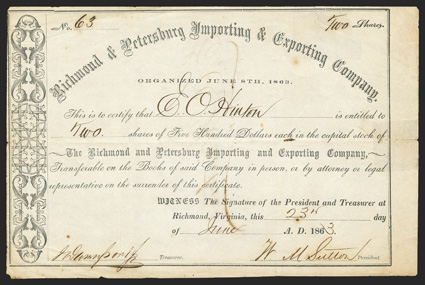 No. 63
Two Shares.
Richmond & Petersburg Importing & Exporting Company
ORGANIZED JUNE 8TH, 1863.
This is to certify that E. O. Hinton is entitled to
Two shares of Five Hundred Dollars each in the capital stock of
The Richmond and Petersburg Importing and Exporting Company,
Transferable on the Books of said Company in person, or by attorney or legal
representative on the surrender of this certificate.
WITNESS The Signature of the President and Treasurer at
Richmond, Virginia, this 23rd day
of June A. D. 1863.
Treasurer.
W. M. Sutton President